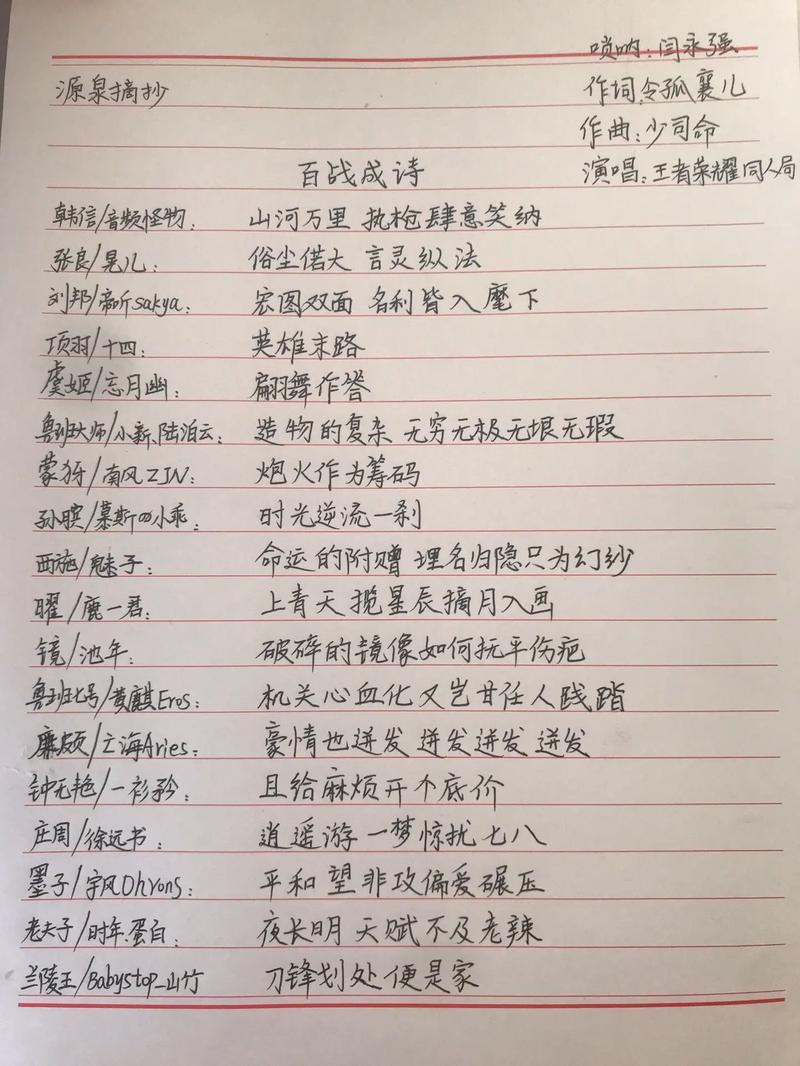 唢呐：闫永强
源泉摘抄
作词：令孤襄儿
作曲：少司命
百战成诗
演唱：王者荣耀同人局
韩信/音频怪物： 山河万里 执枪肆意笑纳
张良/晃儿： 俗尘偌大 言灵纵法
刘邦/帝昕sakya： 宏图双面 名利皆入麾下
项羽/十四： 英雄末路
虞姬/忘月幽： 翩羽舞作答
鲁班大师/小新、陆泊云： 造物的复杂 无穷无极无垠无瑕
蒙犽/南风ZJN： 炮火作为筹码
孙膑/慕斯の小乖： 时光逆流一刹
西施/魅子： 命运的附赠 埋名归隐只为幻纱
曜/鹿一君： 上青天揽星辰摘月入画
镜/池年： 破碎的镜像如何抚平伤疤
鲁班七号/黄麒Eros： 机关心血化又岂甘任人践踏
廉颇/亡海Aries： 豪情也迸发 迸发迸发 迸发
钟无艳/一衫矜： 且给麻烦开个底价
庄周/徐远书： 逍遥游 一梦惊扰七八
墨子/宇风Ohyons： 平和 望 非攻偏爱碾压
老夫子/时年.蛋白： 夜长明 天赋不及老辣
兰陵王/Babystop_山竹 刀锋划处便是家